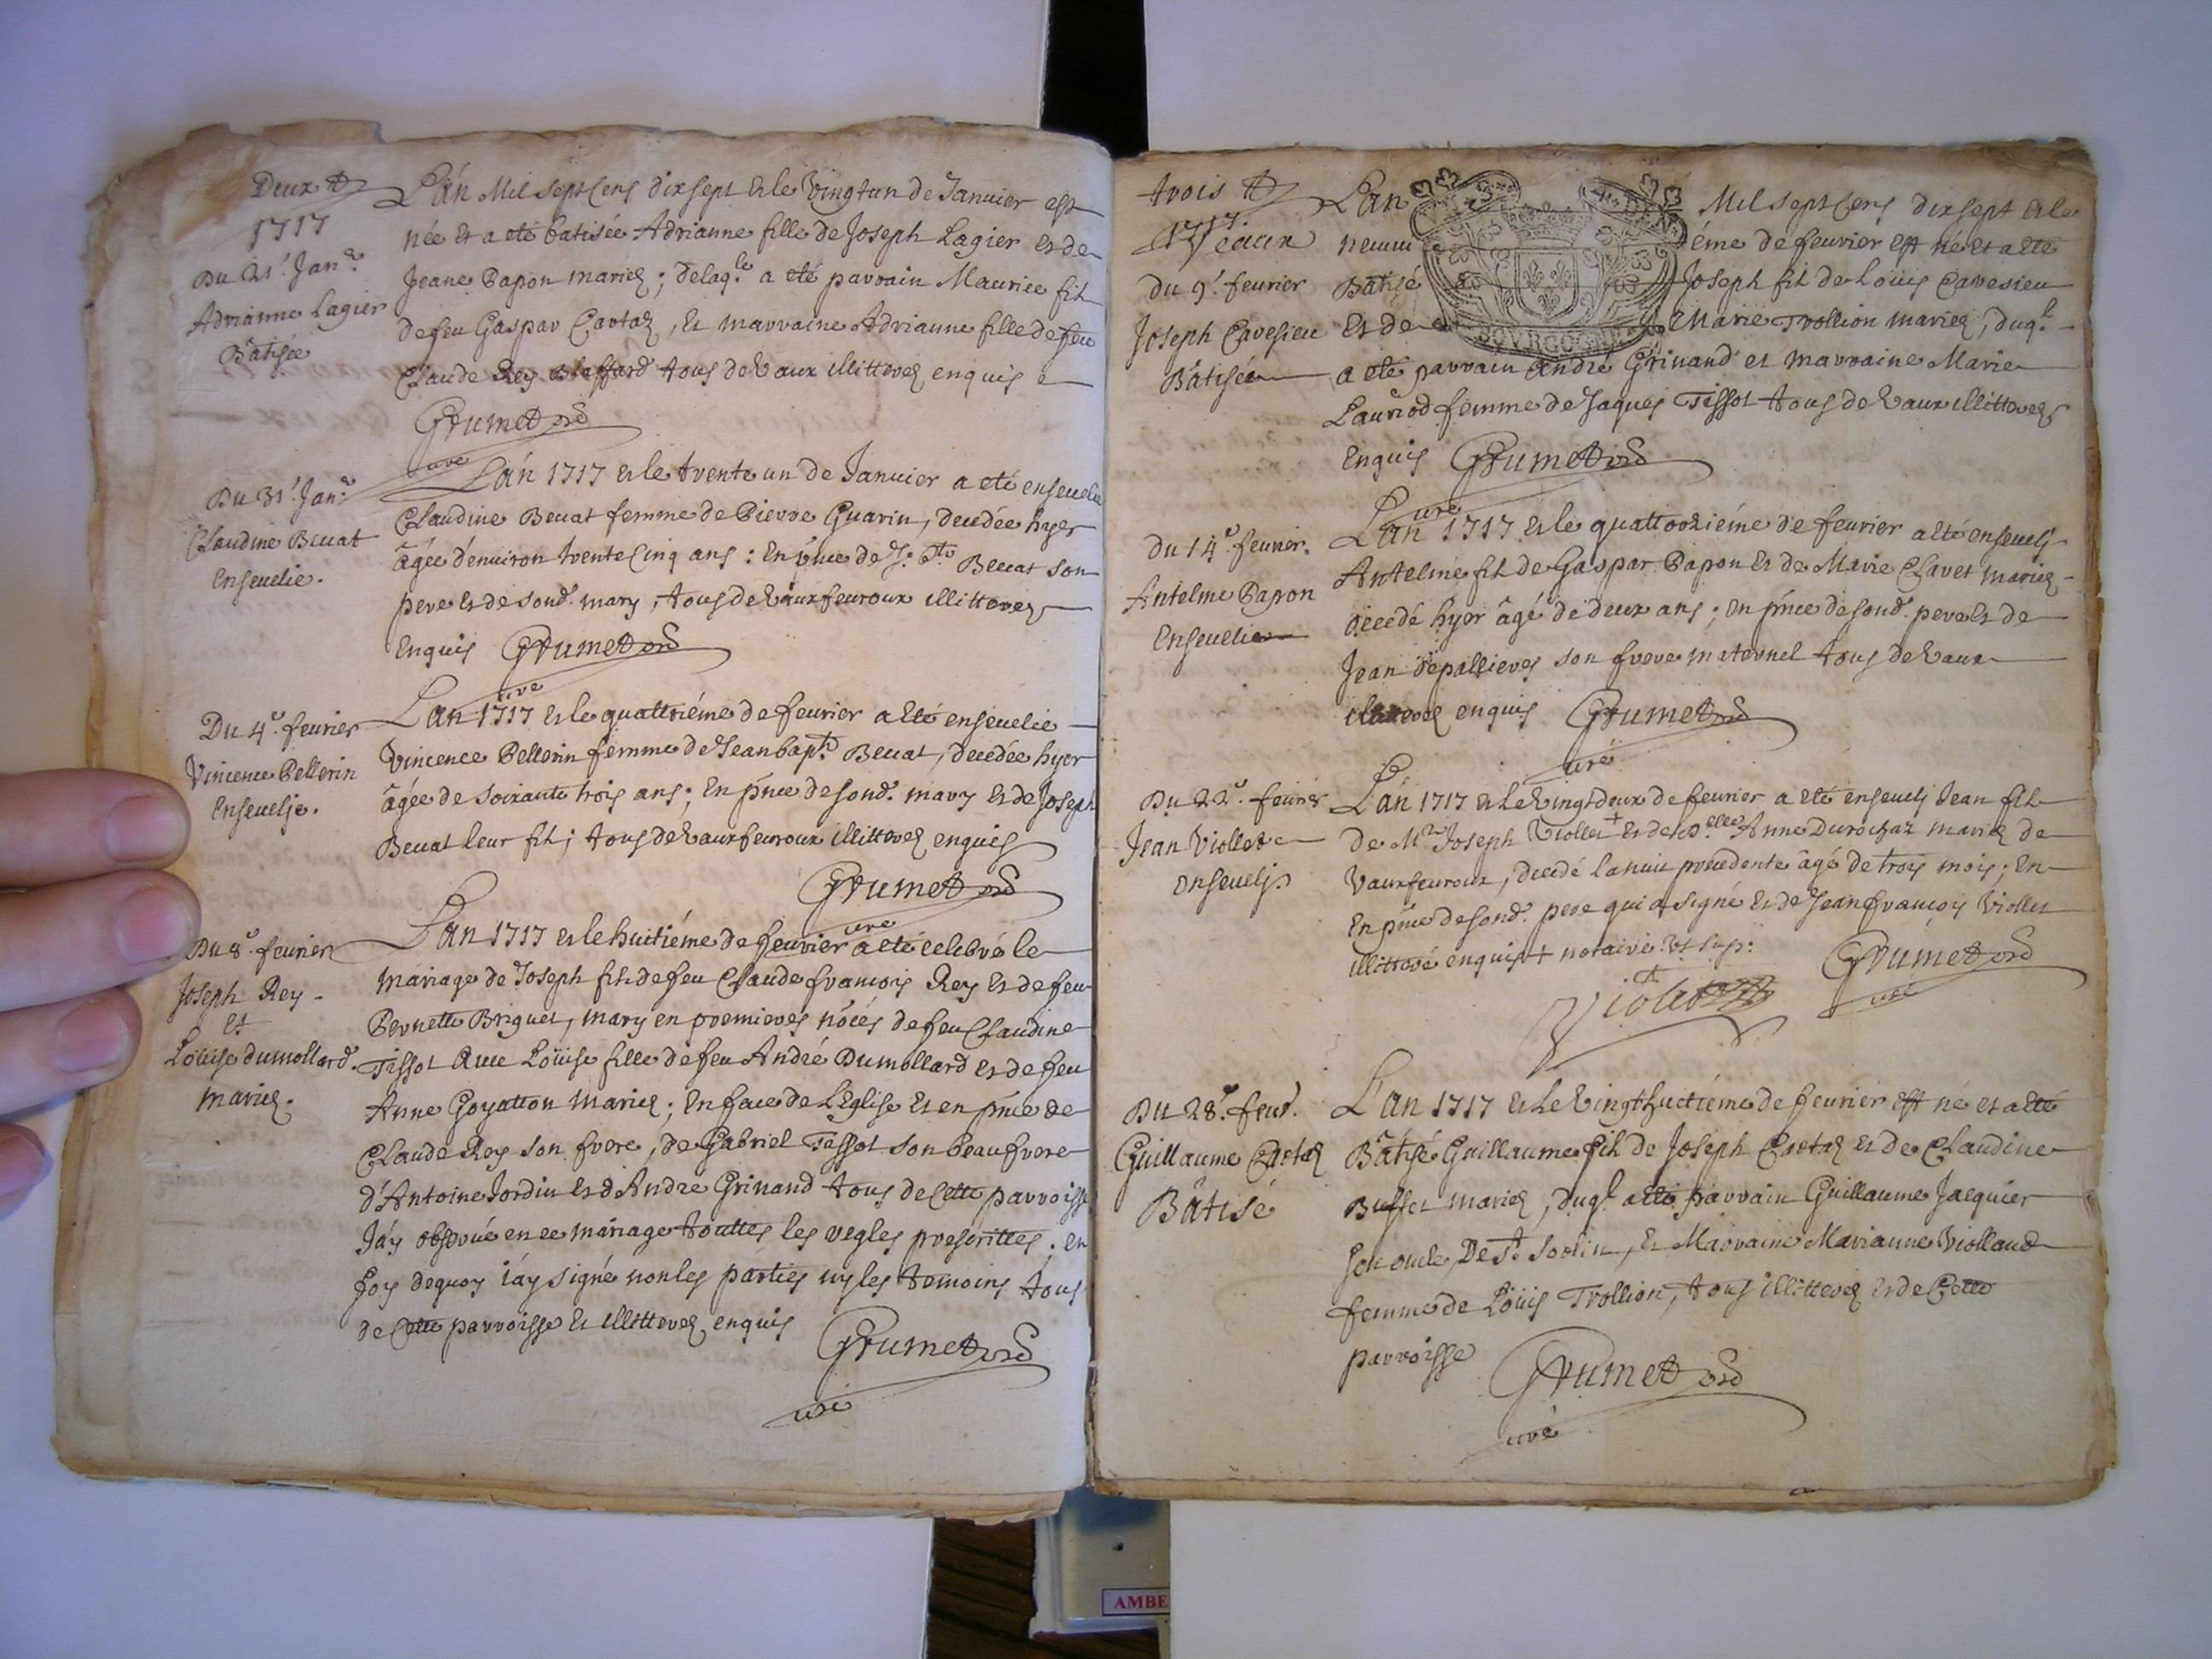 Deux
1717
Du 21.e Jan.er
Adrianne Lagier
Bâtisée
L'an Mil sept cens dix sept et le vingt un de Januier est
née et a eté batisée Adrianne fille de Joseph Lagier et de
Jeane Papon mariez ; delaq.le a eté parrain Maurice fils
de feu Gaspar Cartaz, et marraine Adrianne fille de feu
Claude Rey Blaffard tous de Vaux illitterez enquis
Grumet
curé
Du 31.e Jan.er
Claudine Beuat
enseuelie.
L'an 1717 et le trente un de Januier a eté enseuelie
Claudine Beuat femme de Pierre Guarin, decedée hyer
âgée d'enuiron trente cinq ans : en p'nce de J. B.te Beuat son
pere et de sond. mary, tous de Vaux feuroux illitterez
enquis Grumet
curé
Du 4.e feurier
Vincence Pellerin
enseuelje.
L'an 1717 et le quattriéme de feurier a eté enseuelie
Vincence Pellerin femme de Jean bap.te Beuat, decedée hyer
âgée de soixante trois ans ; en p'nce de sond. mary et de Joseph
Beuat leur fils ; tous de Vaux feuroux illitterez enquis
Grumet
curé
Du 8.e feurier
Joseph Rey
et
Loüise dumollard.
mariez.
L'an 1717 et le huitiéme de feurier a eté celebré le
mariage de Joseph fils de feu Claude françois Rey et de feu
Pernette Briguet, mary en premieres nôces de feu Claudine
Tissot Auec Loüise fille de feu André Dumollard et de feu
Anne Goyatton mariez ; en face de L'Eglise et en p'nce de
Claude Rey son frere, de Gabriel Tissot son beaufrere
d'Antoine Jordin et d'André Grinand tous de cette parroisse
J'ay obserué en ce mariage touttes les regles prescrittes ; en
foy dequoy j'ay signé non les parties ny les temoins tous
de cette parroisse et illitterez enquis
Grumet
curé
trois
1717
Veaux
du 9.e feurier
Joseph Cavesieu
Bâtisée
L'an Mil sept cens dix sept et le
neuui éme de feurier est né et a eté
Bâtisé Joseph fils de Loüis Cavesieu
et de Marie Trollion mariez, duq.l
BOURGOGNE
a eté parrain André Grinand et marraine Marie
Lauriod femme de Jaques Tissot tous de Vaux illitterez
enquis Grumet
curé
Du 14.e feurier.
Antelme Papon
enseuelie
L'an 1717 et le quattorziéme de feurier a eté enseuelj
Antelme fils de Gaspar Papon et de Marie Clavet mariez
decedé hyer âgé de deux ans ; en p'nce de sond. pere et de
Jean depallieres son frere maternel tous de Vaux
illitterez enquis Grumet
curé
Du 22.e feurier
Jean Viollet
enseuelj
L'an 1717 et le Vingt deux de feurier a eté enseuelj Jean fils
de M.re Joseph Viollet + et de D.elle Anne Durochaz mariez de
Vauxfeuroux, decedé la nuit precedente âgé de trois mois ; en
en p'nce de sond. pere qui a signé et de Jean françois Viollet
illitteré enquis + notaire Vt sup:
Violet
Grumet
curé
Du 28.e feur.
Guillaume Cartaz
Bâtisé
L'an 1717 et le Vingthuctiéme de feurier est né et a eté
Bâtisé Guillaume fils de Joseph Cartaz et de Claudine
Buffet mariez, duq.l a eté parrain Guillaume Jacquier
son oncle, De S.t Sorlin, et Marraine Marianne Violland
femme de Loüis Trollion, tous illitterez et de cette
parroisse
Grumet
curé
AMBE